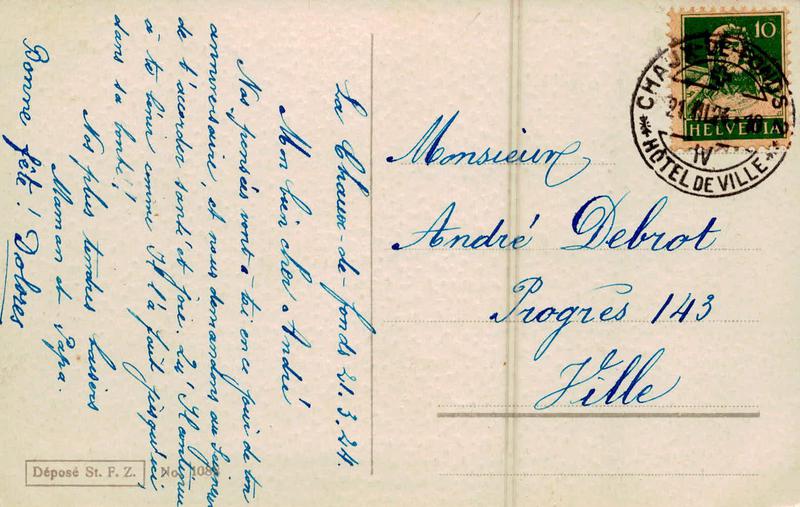 La Chaux-de-fonds 21.3.24.
Mon bien cher André
Nos pensées vont à toi en ce jour de ton
anniversaire, et nous demandons au Seigneur
de t'accorder santé et joie. Qu'Il continue
à te bénir comme Il l'a fait jusqu'ici
dans sa bonté!
Nos plus tendres baisers
Maman et Papa.
Bonne fête! Dolores
Déposé St. F. Z. No. 108
10
HELVETIA
CHAUX-DE-FONDS
21.III.24.-18
IV
* HÔTEL DE VILLE *
Monsieur
André Debrot
Progrès 143
Ville